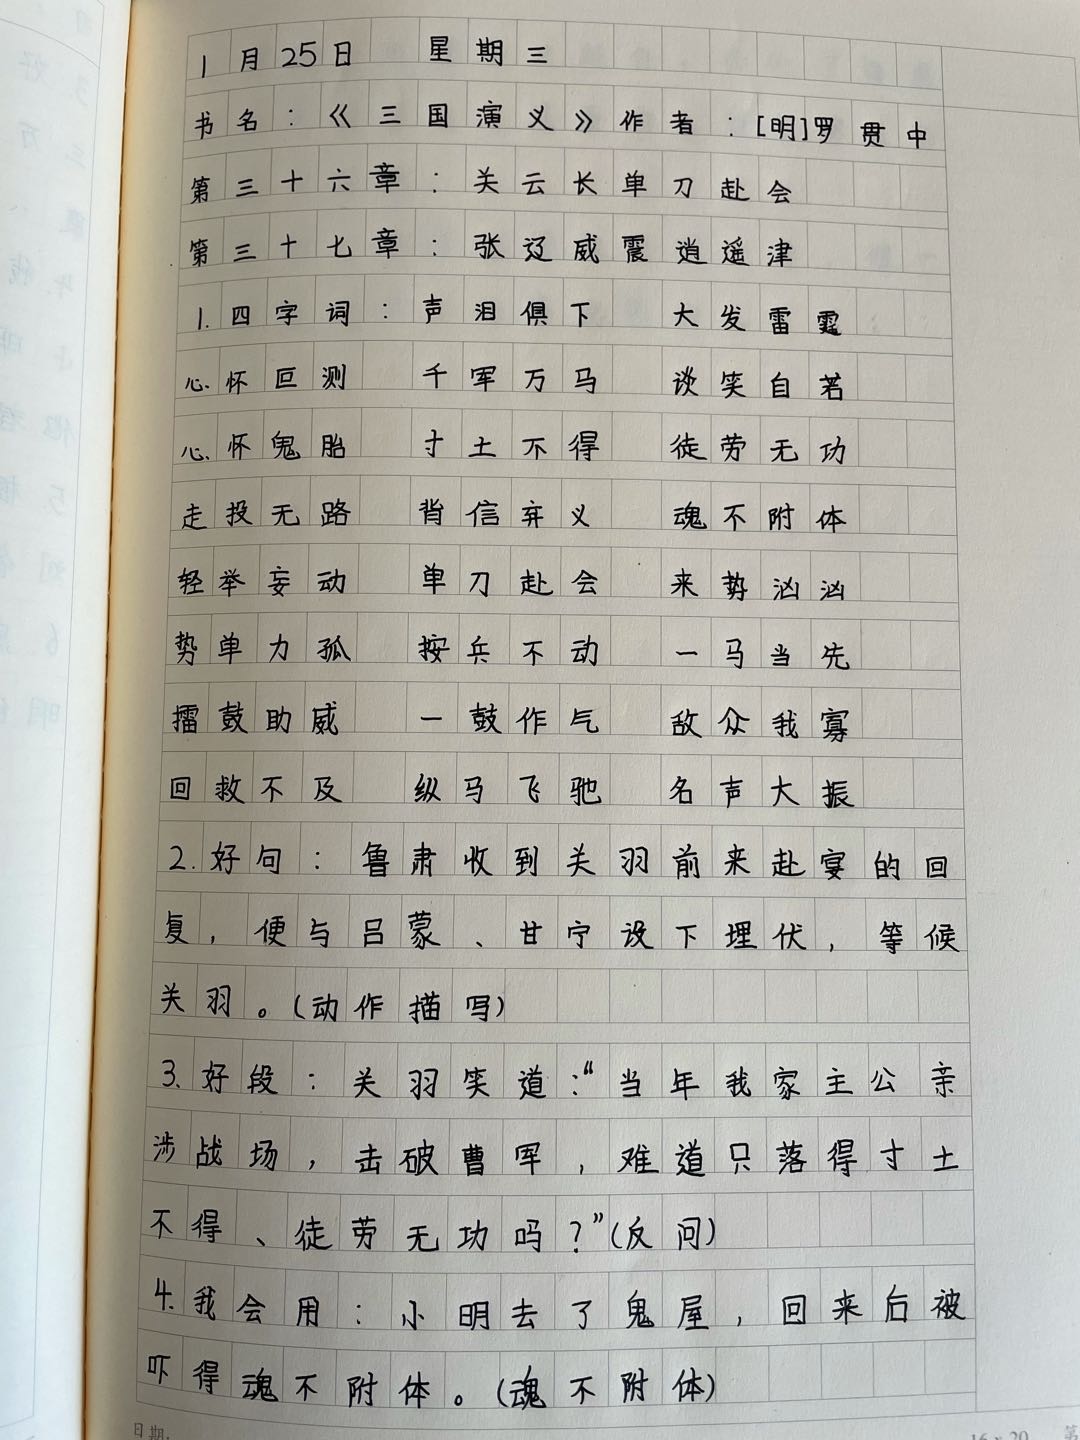 1月25日 星期三
书名：《三国演义》作者：[明]罗贯中
第三十六章：关云长单刀赴会
第三十七章：张辽威震逍遥津
1.四字词：声泪俱下 大发雷霆
心怀叵测 千军万马 谈笑自若
心怀鬼胎 寸土不得 徒劳无功
走投无路 背信弃义 魂不附体
轻举妄动 单刀赴会 来势汹汹
势单力孤 按兵不动 一马当先
擂鼓助威 一鼓作气 敌众我寡
回救不及 纵马飞驰 名声大振
2.好句：鲁肃收到关羽前来赴宴的回
复，便与吕蒙、甘宁设下埋伏，等候
关羽。(动作描写)
3.好段：关羽笑道：“当年我家主公亲
涉战场，击破曹军，难道只落得寸土
不得、徒劳无功吗？”(反问)
4.我会用：小明去了鬼屋，回来后被
吓得魂不附体。(魂不附体)
日期:
16×20 第